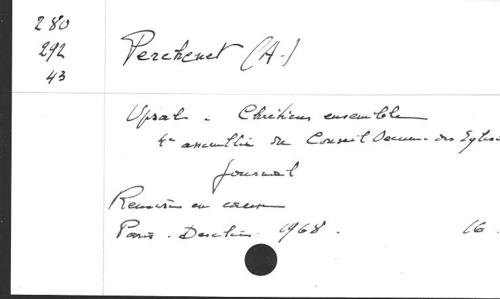 280
292
43
Perchenet (A-)
Upsal - Chrétiens ensemble
4e assemblée du Conseil Oecum. des Eglises
Journal
Paris. Desclée. 1968. 16